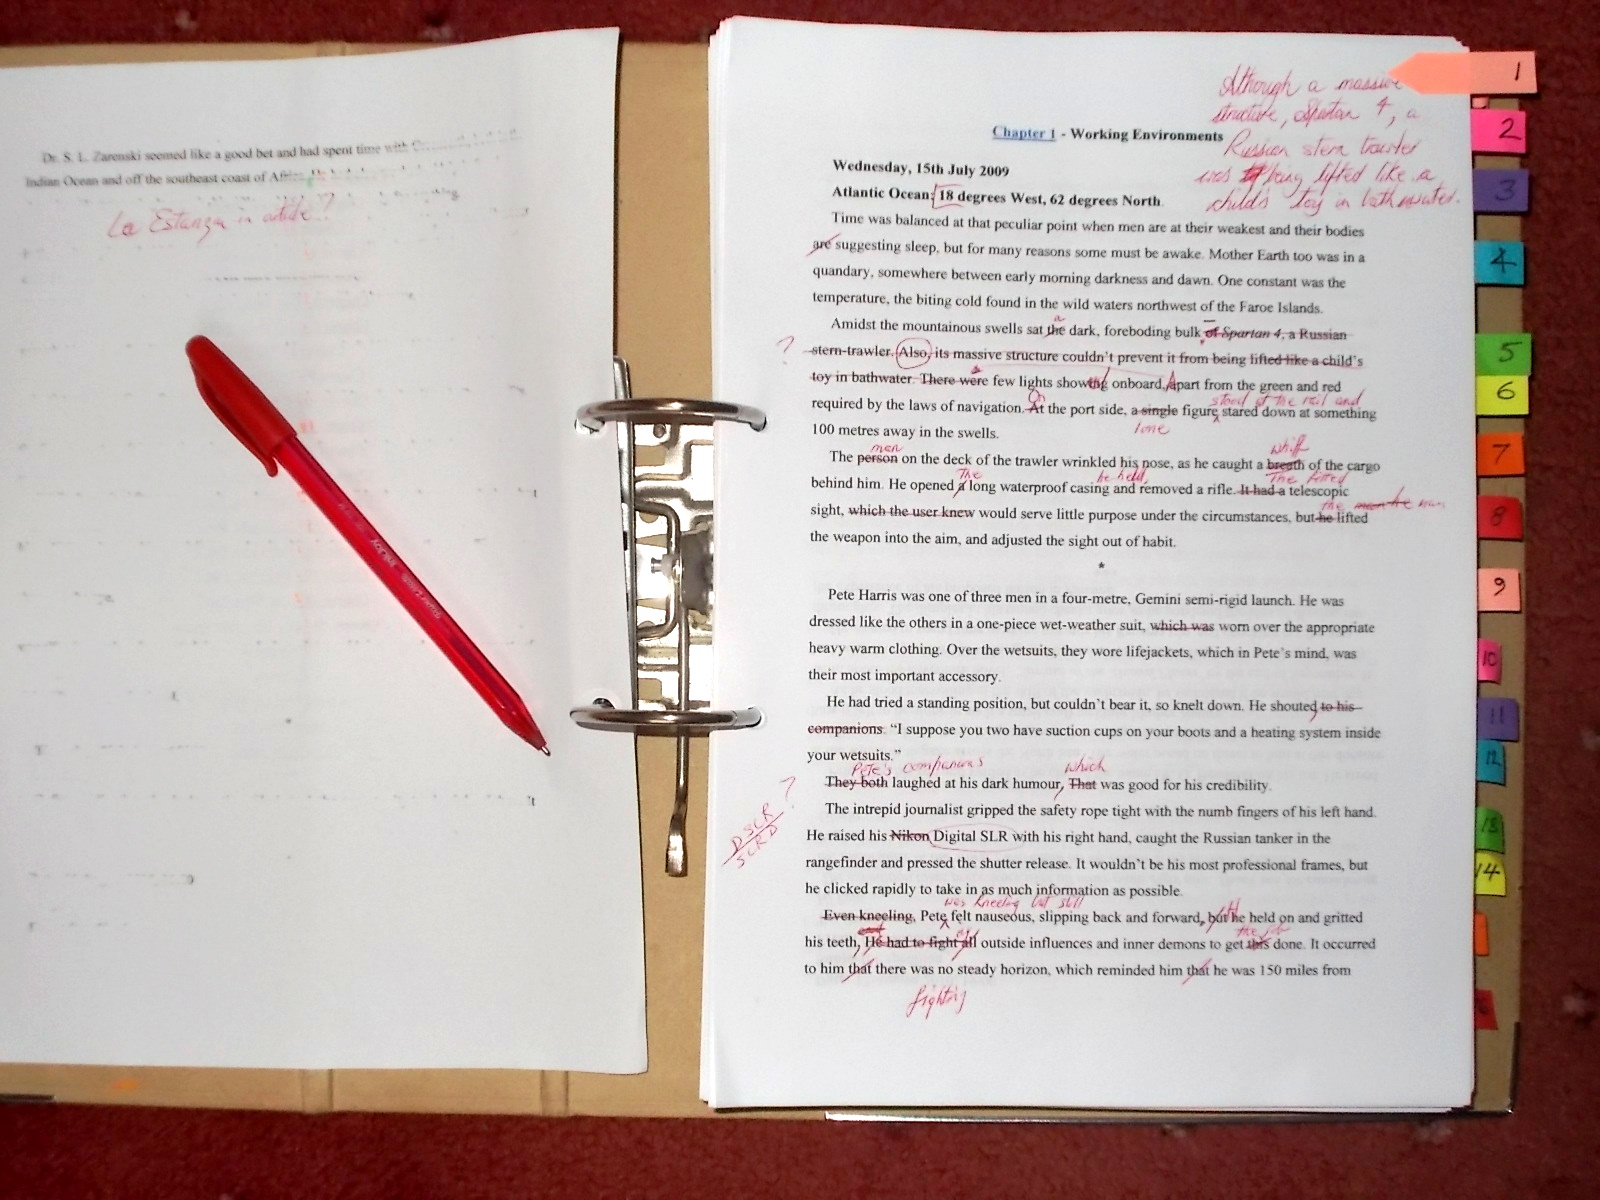 Dr. S. L. Zarenski seemed like a good bet and had spent time with
Indian Ocean and off the southeast coast of Africa.
La Estanza in article?
Although a massive
structure, Spartan 4, a
Russian stern trawler
was being lifted like a
child's toy in bathwater.
Chapter 1 - Working Environments
Wednesday, 15th July 2009
Atlantic Ocean: 18 degrees West, 62 degrees North.
Time was balanced at that peculiar point when men are at their weakest and their bodies
are suggesting sleep, but for many reasons some must be awake. Mother Earth too was in a
quandary, somewhere between early morning darkness and dawn. One constant was the
temperature, the biting cold found in the wild waters northwest of the Faroe Islands.
a
Amidst the mountainous swells sat the dark, foreboding bulk of Spartan 4, a Russian
?
stern-trawler. Also, its massive structure couldn't prevent it from being lifted like a child's
toy in bathwater. There were few lights showing onboard. Apart from the green and red
On
stood at the rail and
required by the laws of navigation. At the port side, a single figure stared down at something
lone
100 metres away in the swells.
man
whiff
The person on the deck of the trawler wrinkled his nose, as he caught a breath of the cargo
The
he held,
The fitted
behind him. He opened a long waterproof casing and removed a rifle. It had a telescopic
the man
sight, which the user knew would serve little purpose under the circumstances, but he lifted
the weapon into the aim, and adjusted the sight out of habit.
*
Pete Harris was one of three men in a four-metre, Gemini semi-rigid launch. He was
dressed like the others in a one-piece wet-weather suit, which was worn over the appropriate
heavy warm clothing. Over the wetsuits, they wore lifejackets, which in Pete's mind, was
their most important accessory.
He had tried a standing position, but couldn't bear it, so knelt down. He shouted to his
companions. “I suppose you two have suction cups on your boots and a heating system inside
your wetsuits.”
Pete's companions
which
They both laughed at his dark humour, That was good for his credibility.
The intrepid journalist gripped the safety rope tight with the numb fingers of his left hand.
?
DSCR
SCRD
He raised his Nikon Digital SLR with his right hand, caught the Russian tanker in the
rangefinder and pressed the shutter release. It wouldn't be his most professional frames, but
he clicked rapidly to take in as much information as possible.
was kneeling but still
Even kneeling, Pete felt nauseous, slipping back and forward, but he held on and gritted
the job
his teeth, He had to fight all outside influences and inner demons to get this done. It occurred
to him that there was no steady horizon, which reminded him that he was 150 miles from
fighting
1
2
3
4
5
6
7
8
9
10
11
12
13
14